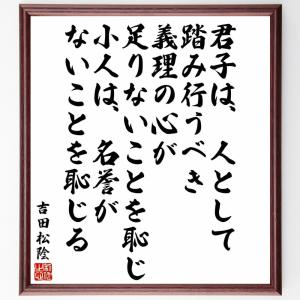 君子は、人として
踏み行うべき
義理の心が
足りないことを恥じ
小人は、名誉が
ないことを恥じる
吉田松陰